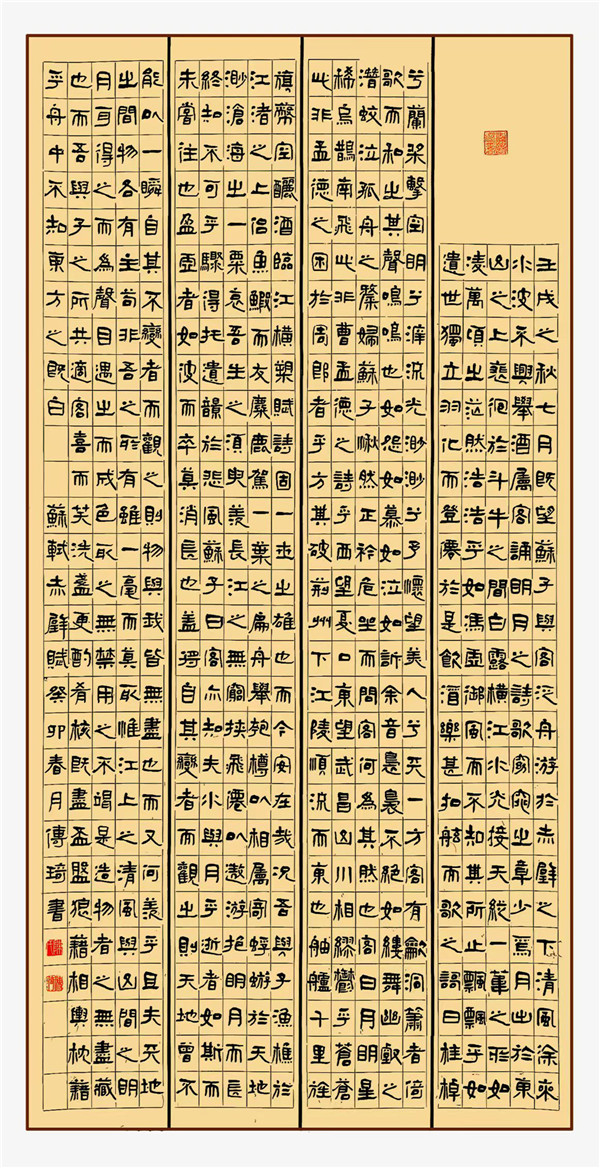 壬戌之秋七月既望蘇子與客泛舟游於赤壁之下清風徐來
水波不興舉酒屬客誦明月之詩歌窈窕之章少焉月出於東
山之上裴徊於斗牛之間白露橫江水光接天縱一葦之所如
凌萬頃之茫然浩浩乎如馮虛御風而不知其所止飄飄乎如
遺世獨立羽化而登僊於是飲酒樂甚扣舷而歌之謌曰桂棹
兮蘭槳擊空明兮泝流光渺渺兮予懷望美人兮天一方客有歙洞簫者倚
歌而和之其聲嗚嗚也如怨如慕如泣如訴余音裊裊不絕如縷舞幽壑之
潛蛟泣孤舟之嫠婦蘇子愀然正衿危坐而問客何為其然也客曰月明星
稀烏鵲南飛此非曹孟德之詩乎西望夏口東望武昌山川相繆鬱乎蒼蒼
此非孟德之困於周郎者乎方其破荊州下江陵順流而東也舳艫千里旌
旗蔽空釃酒臨江橫槊賦詩固一世之雄也而今安在哉況吾與子漁樵於
江渚之上侶魚鰕而友麋鹿駕一葉之扁舟舉匏樽以相屬寄蜉蝣於天地
渺滄海之一粟哀吾生之須臾羨長江之無窮挾飛僊以遨游抱明月而長
終知不可乎驟得托遺韻於悲風蘇子曰客亦知夫水與月乎逝者如斯而
未嘗往也盈虛者如彼而卒莫消長也蓋將自其變者而觀之則天地曾不
能以一瞬自其不變者而觀之則物與我皆無盡也而又何羨乎且夫天地
之間物各有主苟非吾之所有雖一毫而莫取惟江上之清風與山間之明
月耳得之而為聲目遇之而成色取之無禁用之不竭是造物者之無盡藏
也而吾與子之所共適客喜而笑洗盞更酌肴核既盡杯盤狼藉相與枕藉
乎舟中不知東方之既白 蘇軾赤壁賦癸卯春月傅琦書